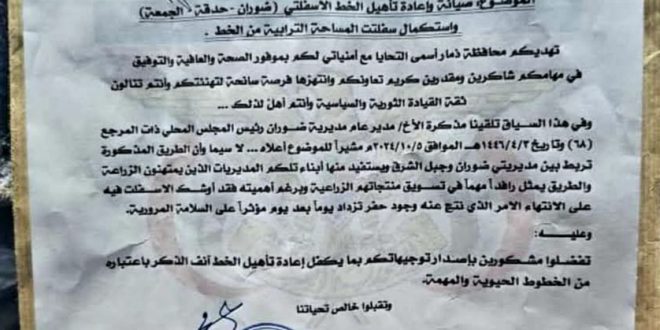 الموضوع: صيانة وإعادة تأهيل الخط الاسفلتي (ضوران - حدقة - الجمعة)
واستكمال سفلتت المساحة الترابية من الخط .
تهديكم محافظة ذمار أسمى التحايا مع أمنياتي لكم بموفور الصحة والعافية والتوفيق
في مهامكم شاكرين ومقدرين كريم تعاونكم وانتهزها فرصة سانحة لتهنئتكم وأنتم تنالون
ثقة القيادة الثورية والسياسية وأنتم أهل لذلك ...
وفي هذا السياق تلقينا مذكرة الأخ/ مدير عام مديرية ضوران رئيس المجلس المحلي ذات المرجع
(٦٨) وتاريخ ١٤٤٦/٤/٢هـ الموافق ٢٠٢٤/١٠/٥م مشيراً للموضوع أعلاه... لا سيما وأن الطريق المذكورة
تربط بين مديريتي ضوران وجبل الشرق ويستفيد منها أبناء تلكم المديريات الذين يمتهنون الزراعة
والطريق يمثل رافداً مهماً في تسويق منتجاتهم الزراعية وبرغم أهميته فقد أوشك الاسفلت فيه
على الانتهاء الامر الذي نتج عنه وجود حفر تزداد يوماً بعد يوم مؤثراً على السلامة المرورية.
وعليه:
تفضلوا مشكورين بإصدار توجيهاتكم بما يكفل إعادة تأهيل الخط آنف الذكر باعتباره
من الخطوط الحيوية والمهمة.
وتقبلوا خالص تحياتنا